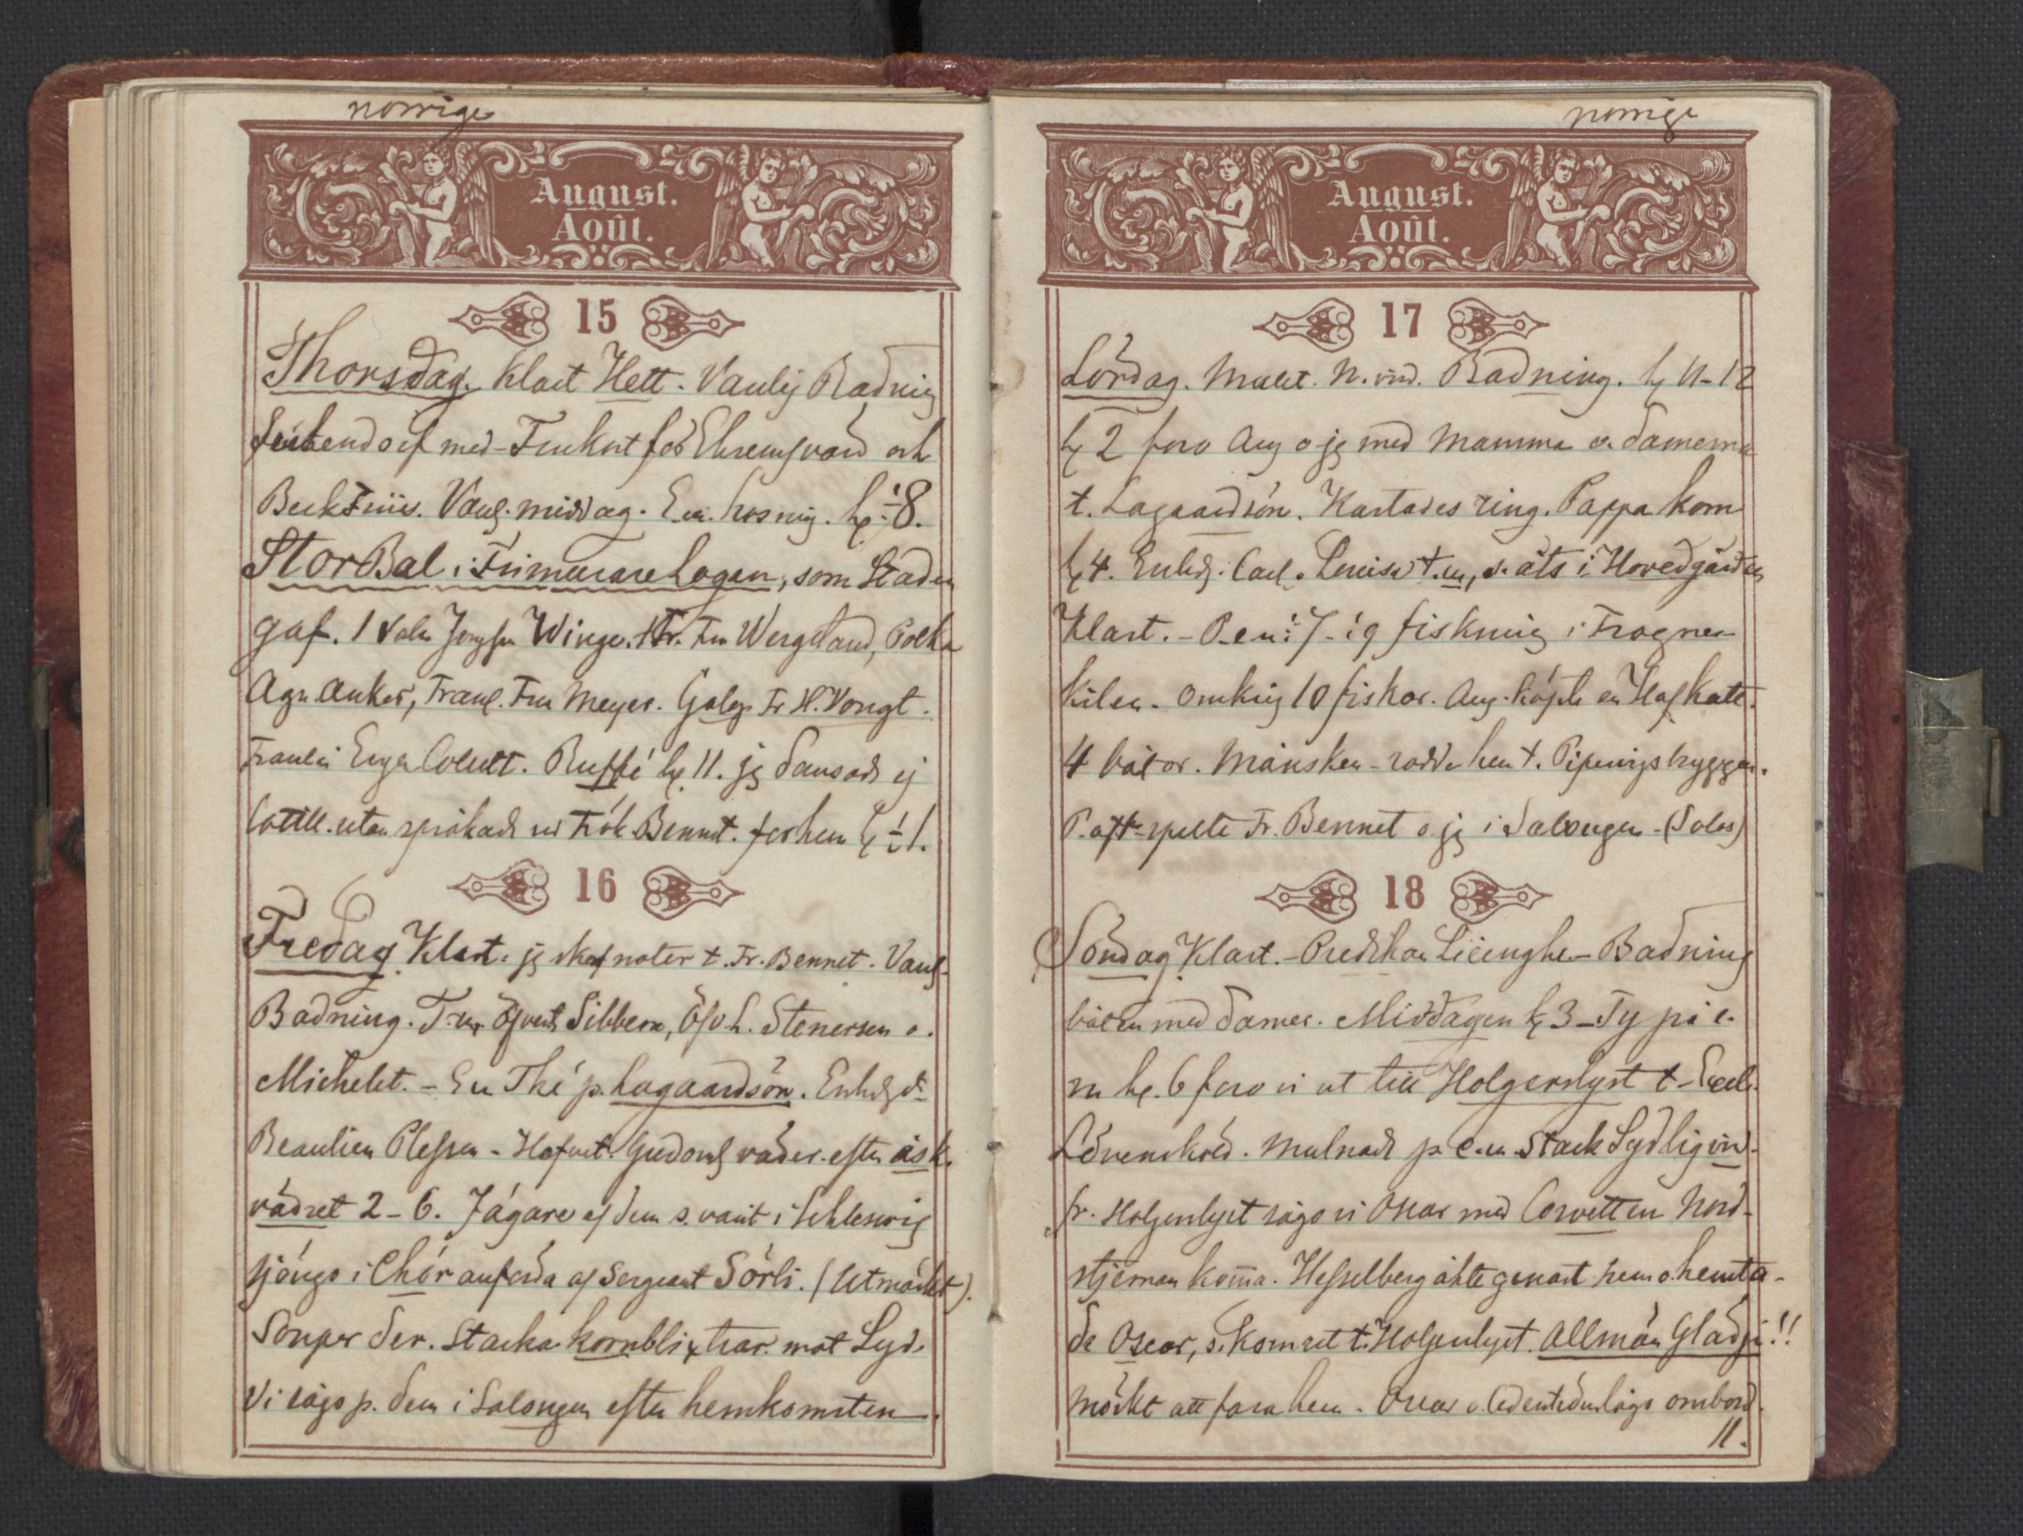 norrige
August.
Août.
15
Thorsdag. Klart Hett. Vanlig Badning
med Frukost för Ehrensvärd och
Beckfriis. Vanl. middag. E.m. hos mig. kl. ½ 8.
Stor Bal i Frimurare Logen, som Staden
gaf. 1 Vals Jomfru Winge. 1 Fr. Fru Wergeland, Polka
Agn. Anker, Franç. Fru Meyer. Galop Fr H. Vongt.
Collett. Buffé kl. 11. jg dansade ej
Cotill. utan språkade m Frök Bennet. for hem kl ½ 1.
16
Fredag. Klart. jg skref noter t. Fr. Bennet. Vanl.
Badning. Sibbern, Öfv. L. Stenersen o.
Michelet. - En Thé p. Lagaardsön.
Beaulieu Plessen - Hofvet. Gudoml väder. efter åsk.
vädret 2 - 6. Jägare af dem s. varit i Schleswig
sjöngo i Chör anförda af Sergeant Sörli. (Utmärkt).
Souper der. Starka kornblixtrar mot Syd.
Vi sågo p. dem i Salongen efter hemkomsten.
norrige
August.
Août.
17
Lördag. Mulet. N. vind. Badning. kl 11-12
kl 2 foro Aug o jg med Mamma o. damerna
t. Lagaardsön. Kastades ring. Pappa kom
kl 4. Carl o Lovisa t. m, s. äts i Hovedgården
Klart. - P. e.m. ½ 7 - ½ 9 fiskning i Frogner-
kilen. Omkring 10 fiskar. Aug. köpte en Hafkatt.
4 båtar. Månsken - rodde hem t. Pipervigsbryggan.
P. aft. spelte Fr. Bennet o jg i Salongen - (Solos)
18
Söndag. Klart. - Predikan - Badning
båten med damer. Middagen kl 3 - Ty på e.
m kl. 6 foro vi ut till Holgerslyst t - Excel.
Lövenskold. Mulnade p e.m. Stark Sydlig vind.
fr. Holgerslyst sågo vi Oscar med Corvetten Nord-
stjernan kom̄a. Hesselberg åkte genast hem o. hemta-
de Oscar, s. kom ut t. Holgerslyst. Allmän Glädje!!
Mörkt att fara hem. Oscar o. lågo ombord.
11.